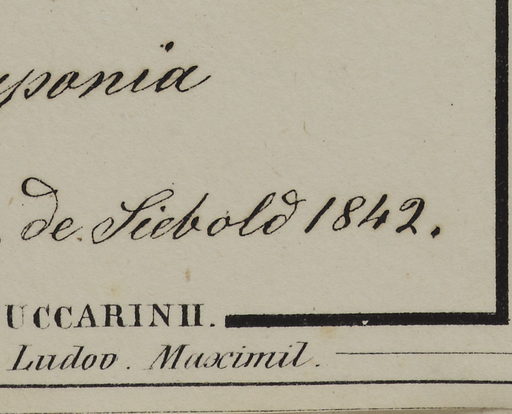 yponia
de Siebold 1842.
UCCARINII.
Ludov. Maximil.